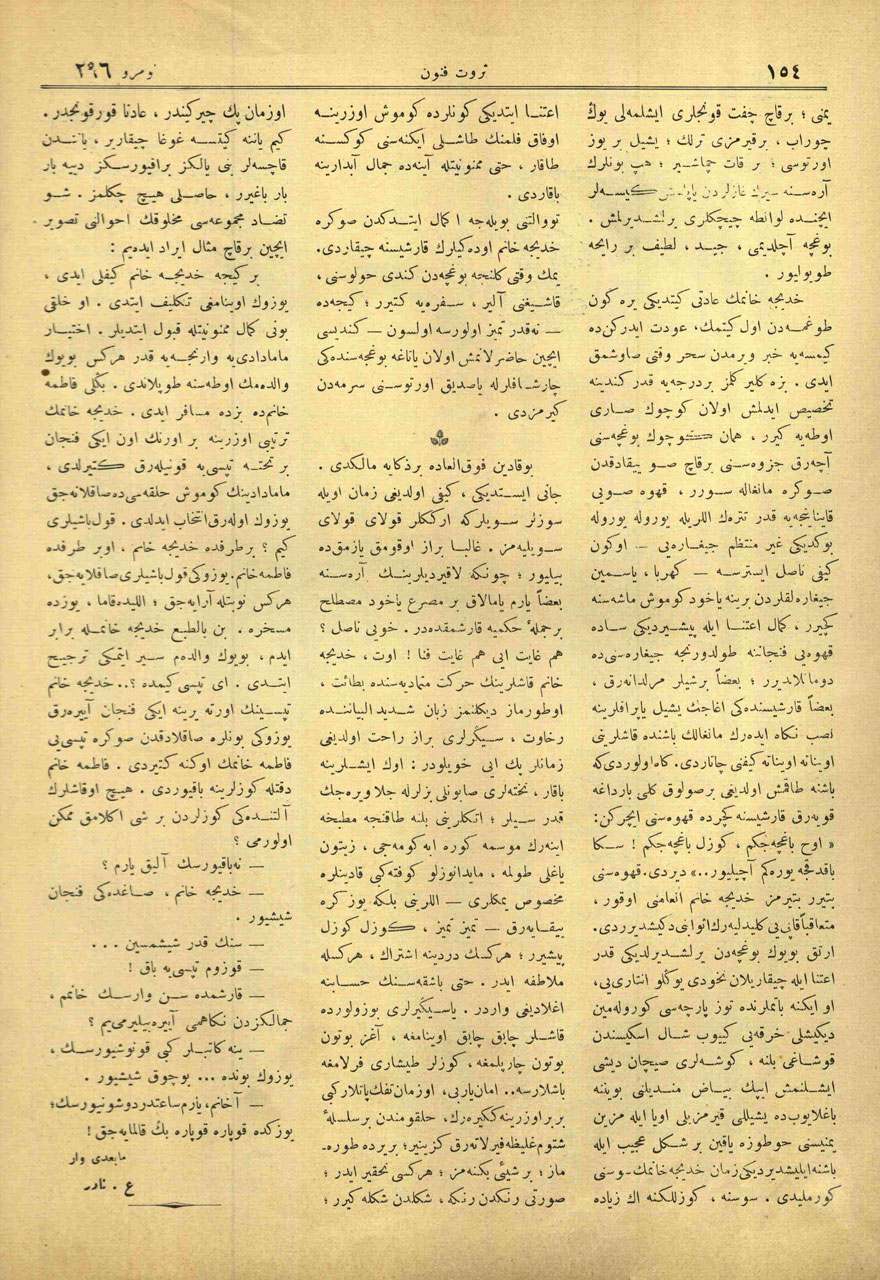 ١٥٤
ثروت فنون
نومرو ٢٩٦
یمنی ؛ برقاچ چفت قونجلری ایشلمه‌لی یوك
چوراب ، برقیرمزی ترلك ؛ یشیل بر یوز
اورتوسی ؛ بر قات چماشیر ؛ هپ بونلرك
آره‌سنه سیرك غازلردن یاپلمش كیسه‌لر
ایچنده لوانطه چیچكلری یرلشدیرلمش .
بوغچه آچلدیمی ، جید ، لطیف بر رایحه
طویولیور .
خدیجه خانمك عادتی كیتدیكی یره كون
طوغمه‌دن اول كیتمك، عودت ایدركن‌ده
كیمسه‌یه خبر ویرمدن سحر وقتی صاوشمق
ایدی . بزه كلیر كلمز بردرجه‌یه قدر كندینه
تخصیص ایدلمش اولان كوچوك صاری
اوطه‌یه كیرر ، همان كوچوك بوغچه‌سنی
آچه‌رق جزوه‌سنی برقاچ صو ییقادقدن
صوكره مانغاله سورر ، قهوه صویی
قاینایجه‌یه قدر تتره‌ك اللریله یوروله یوروله
بوكدیكی غیر منتظم جیغاره‌یی — اوكون
كیفی ناصل ایسترسه — كهربا ، یاسمین
جیغاره‌لقلردن برینه یاخود كوموش ماشه‌سنه
كچیرر ، كمال اعتنا ایله پیشیردیكی ساده
قهوه‌یی فنجاننه طولدورنجه جیغاره‌سنی ده
دومانلاندیرر ؛ بعضاً برشیلر مرلدانه‌رق ،
بعضاً قارشیسنده‌كی اغاجك یشیل یاپراقلرینه
نصب نگاه ایده‌رك مانغالك باشنده قاشلرینی
اویناته اویناته كیفنی چاتاردی. كاه اولوردی كه
باشنه طاقمش اولدیغی برصولوق كلی بارداغه
قویه‌رق قارشیسنه كچرده قهوه‌سنی ایچركن:
« اوح باغچه‌جكم ، كوزل باغچه‌جكم ! سكا
باقدقجه یوره‌كم آچیلیور..» دیردی. قهوه‌سنی
بتیرر بتیرمز خدیجه خانم انعامنی اوقور ،
متعاقباً قاپی‌یی كلیدلیه‌رك اثوابنی دكیشدیرردی.
ارتق بویوك بوغچه‌دن یرلشدیرلدیكی قدر
اعتنا ایله چیقاریلان نخودی یوكلو انتاری‌یی،
او ایكنه باتملرنده توز پارچه‌سی كوروله‌مین
دیكیشلی خرقه‌یی كییوب شال اسكیسندن
قوشاغی بلنه ، كوشه‌لری صیچان دیشی
ایشلنمش ایپك بیاض مندیلنی بویننه
باغلایوب‌ده یشیللی قیرمزیلی اویا ایله مزین
یمنیسنی حوطوزه یاقین بر شكل عجیب ایله
باشنه ایلیشدیردیكی زمان خدیجه خانمك سوسنی
كورملیدی . سوسنه ، كوزللكنه اك زیاده
اعتنا ایتدیكی كونلرده كوموش اوزرینه
اوفاق فلمنك طاشلی ایكنه‌سنی كوكسنه
طاقار ، حتی ممنونیتله آینه‌ده جمال آبدارینه
باقاردی .
تووالتنی بویله‌جه اكمال ایتدكدن صوكره
خدیجه خانم اوده‌كیلرك قارشیسنه چیقاردی.
یمك وقتی كلنجه بوغچه‌دن كندی حولوسنی ،
قاشیغنی آلیر ، سفره‌یه كتیرر ؛ كیجه‌ده
— نه‌قدر تمیز اولورسه اولسون — كندیسی
ایچین حاضرلانمش اولان یاتاغه بوغچه‌سنده‌كی
چارشافلرله یاصدیق اورتوسنی سرمه‌دن
كیرمزدی .
بوقادین فوق‌العاده برذكایه مالكدی .
جانی ایستدیكی ، كیفی اولدیغی زمان اویله
سوزلر سویلركه ارككلر قولای قولای
سویلیه‌مز . غالبا براز اوقومق یازمق‌ده
بیلیور ؛ چونكه لاقیردیلرینك آره‌سنه
بعضاً یارم یامالاق بر مصرع یاخود مصطلح
برجملهٔ حكمیه قارشمقده‌در . خویی ناصل ؟
هم غایت ایی هم غایت فنا ! اوت ، خدیجه
خانم قاشلرینك حركت متمادیه‌سنده بطائت ،
اوطورماز دیكلنمز زبان شدیدالبیاننده
رخاوت ، سیكرلری براز راحت اولدیغی
زمانلر پك ایی خویلودر : اوك ایشلرینه
باقار ، تخته‌لری صابونلی بزلرله جلا ویره‌جك
قدر سیلر ؛ اتكلرینی بلنه طاقنجه مطبخه
اینه‌رك موسمه كوره ابه‌كومه‌جی ، زیتون
یاغلی طولمه ، مایدانوزلو كوفته‌كی قادینلره
مخصوص یمكلری — اللرینی بلكه یوز كره
ییقایه‌رق — تمیز تمیز ، كوزل كوزل
پیشیرر ؛ هركسك دردینه اشتراك ، هركسله
ملاطفه ایدر . حتی باشقه‌سنك حسابنه
اغلادیغی واردر . یا سیكیرلری بوزولورده
قاشلر چابق چابق اوینامغه ، آغز بوتون
بوتون چارپلمغه ، كوزلر طیشاری فرلامغه
باشلارسه.. امان یاربی، اوزمان تفك پاتلار كبی
بربر اوزرینه ككیره‌رك، حلقومندن برسلسلهٔ
شتوم غلیظه فیرلاته‌رق كزینیر؛ بریرده طوره‌-
ماز ؛ برشیئی بكنه‌مز ؛ هركسی تحقیر ایدر ؛
صورتی رنكدن رنكه ، شكلدن شكله كیرر ؛
اوزمان پك چیركیندر ، عادتا قورقونجدر .
كیم یاننه كیتسه غوغا چیقاریر ، یانندن
قاچسه‌لر بنی یالكز براقیورسكز دییه بار
بار باغیرر ، حاصلی هیچ چكلمز . شو
تضاد مجموعه‌سی مخلوقك احوالنی تصویر
ایچین برقاچ مثال ایراد ایده‌یم :
بر كیجه خدیجه خانم كیفلی ایدی ،
یوزوك اوینامغی تكلیف ایتدی . او خلقی
بونی كمال ممنونیتله قبول ایتدیلر . اختیار
مامادادی‌یه وارنجه‌یه قدر هركس بویوك
والده‌مك اوطه‌سنه طوپلاندی . بكلی فاطمه
خانم‌ده بزده مسافر ایدی . خدیجه خانمك
ترتیبی اوزرینه بر اورنك اون ایكی فنجان
بر تخته تپسی‌یه قونیله‌رق كتیرلدی ،
مامادادینك كوموش حلقه‌سی‌ده صاقلانه‌جق
یوزوك اوله‌رق انتخاب ایدلدی . قول باشیلری
كیم ؟ برطرفده خدیجه خانم ، اوبر طرفده
فاطمه خانم. یوزوكی قول باشیلری صاقلایه‌جق،
هركس نوبتله آرایه‌جق ؛ اللیده قاما ، یوزده
مسخره . بن بالطبع خدیجه خانمله برابر
ایدم ، بویوك والده‌م سیر ایتمكی ترجیح
ایتدی . ای تپسی كیمده ؟.. خدیجه خانم
تپسینك اورته یرینه ایكی فنجان آییره‌رق
یوزوكی بونلره صاقلادقدن صوكره تپسی‌یی
فاطمه خانمك اوكنه كتیردی . فاطمه خانم
دقتله كوزلرینه باقیوردی . هیچ اوقاشلرك
آلتنده‌كی كوزلردن بر شی اكلامق ممكن
اولورمی ؟
— نه‌باقیورسك آلیق یارم ؟
— خدیجه خانم ، صاغده‌كی فنجان
شیشیور .
— سنك قدر شیشمسین ...
— قوزوم تپسی‌یه باق !
— قارشمده سن وارسك خانم ،
جمالكزدن نكاهمی آییره‌بیلیرمی‌یم ؟
— ینه كاتبلر كبی قونوشیورسك ،
یوزوك بونده ... بوچوق شیشیور .
— آ خانم، یارم ساعتدر دوشونیورسك؛
یوزكده قوپاره قوپاره بك قالمایه‌جق !
مابعدی وار
ع . نادر